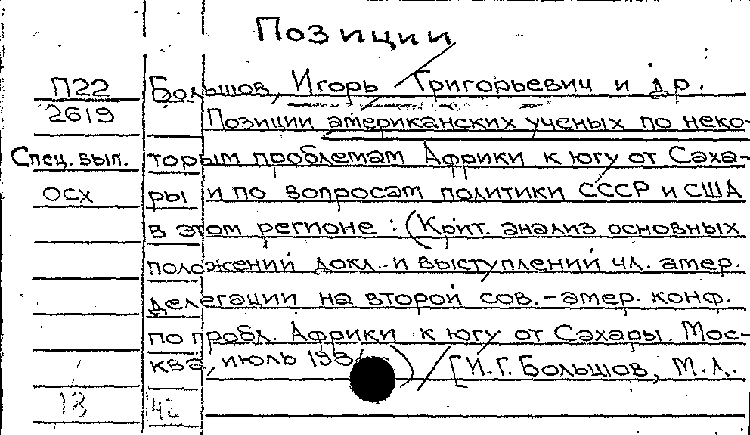 Позиции
П22 Большов, Игорь Григорьевич и др.
2619 Позиции американских ученых по неко-
Спец. вып. торым проблемам Африки к югу от Саха-
осх ры и по вопросам политики СССР и США
в этом регионе: (Крит. анализ основных
положений докл. и выступлений чл. амер.
делегации на второй сов.-амер. конф.
по пробл. Африки к югу от Сахары. Мос-
ква, июль 198 ) / [И.Г. Большов, М.Л.
13 42